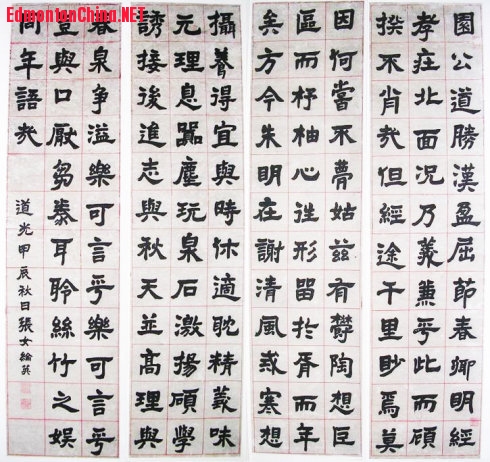 EdmontonChina.NET
園公道勝漢盈屈節春卿明經
孝在北面況乃義兼乎此而碩
揆不肖哉但經途千里眇焉莫
因何當不夢姑茲有鬱陶想巨
區而杼柚心往形留於胥而年
矣方今朱明在謝清風戒寒想
攝養得宜與時休適耽精義味
元理息囂塵玩泉石激揚碩學
誘接後進志與秋天並高理與
春泉爭溢樂可言乎樂可言乎
豈與口厭芻豢耳聆絲竹之娛
同年語哉
道光甲辰秋日張女綸英